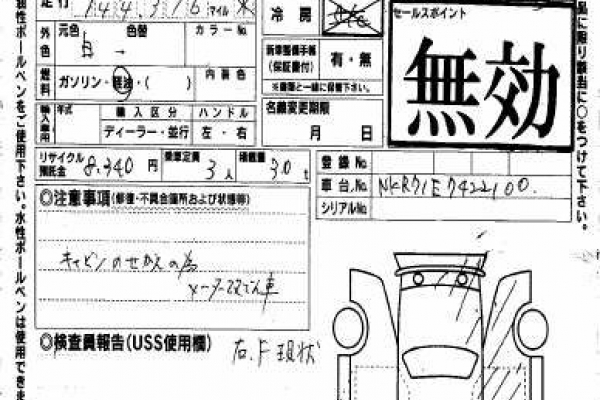 走行 144,316 マイル
冷房
セールスポイント
無効
外色 元色 白 → 色替 カラーNo.
新車整備手帳(保証書付) 有・無
※書類と一緒に保管下さい。
燃料 ガソリン・軽油・( ) 内装色
名義変更期限 月 日
輸入車用 年式 輸入区分 ハンドル
ディーラー・並行 左・右
リサイクル預託金 8,340円 乗車定員 3人 積載量 3.0t
登録No.
車台No. NKR71E7422100.
シリアルNo.
◎注意事項(修復・不具合箇所および状態等)
キャビンのせかえの為
メーター
車
◎検査員報告(USS使用欄) 右.F 現状
油性ボールペンをご使用下さい。水性ボールペンは使用できま
品に限り該当に○をつけて下さい。